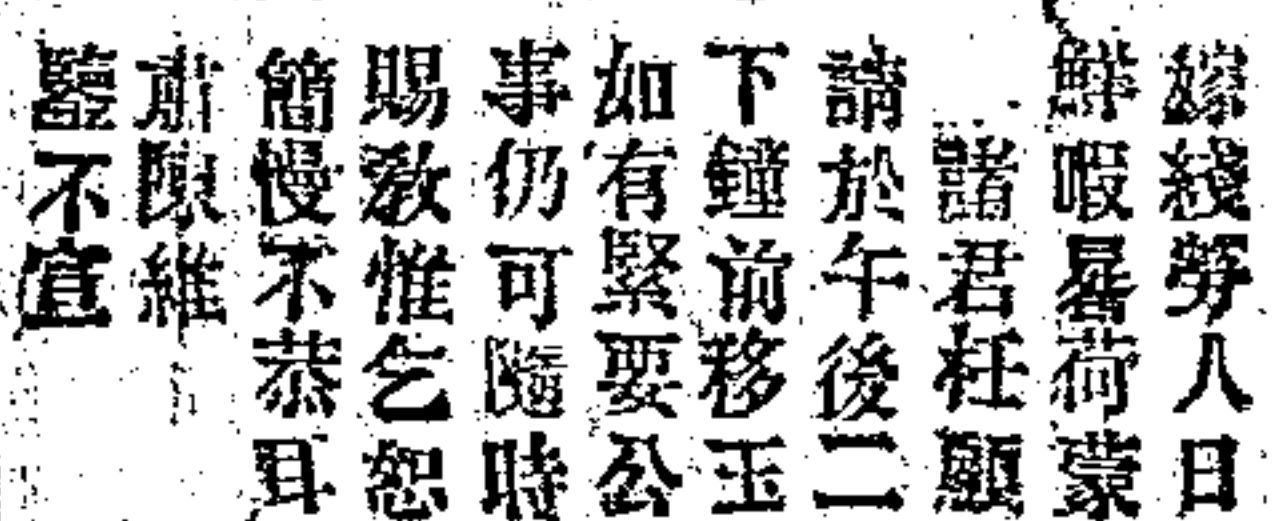 嫁綫勞人日
鮮暇晷荷蒙
諸君枉顧
請於午後二
下鐘前移玉
如有緊要公
事仍可隨時
賜敎惟乞恕
簡慢不恭耳
肅陳維
鑒不宣